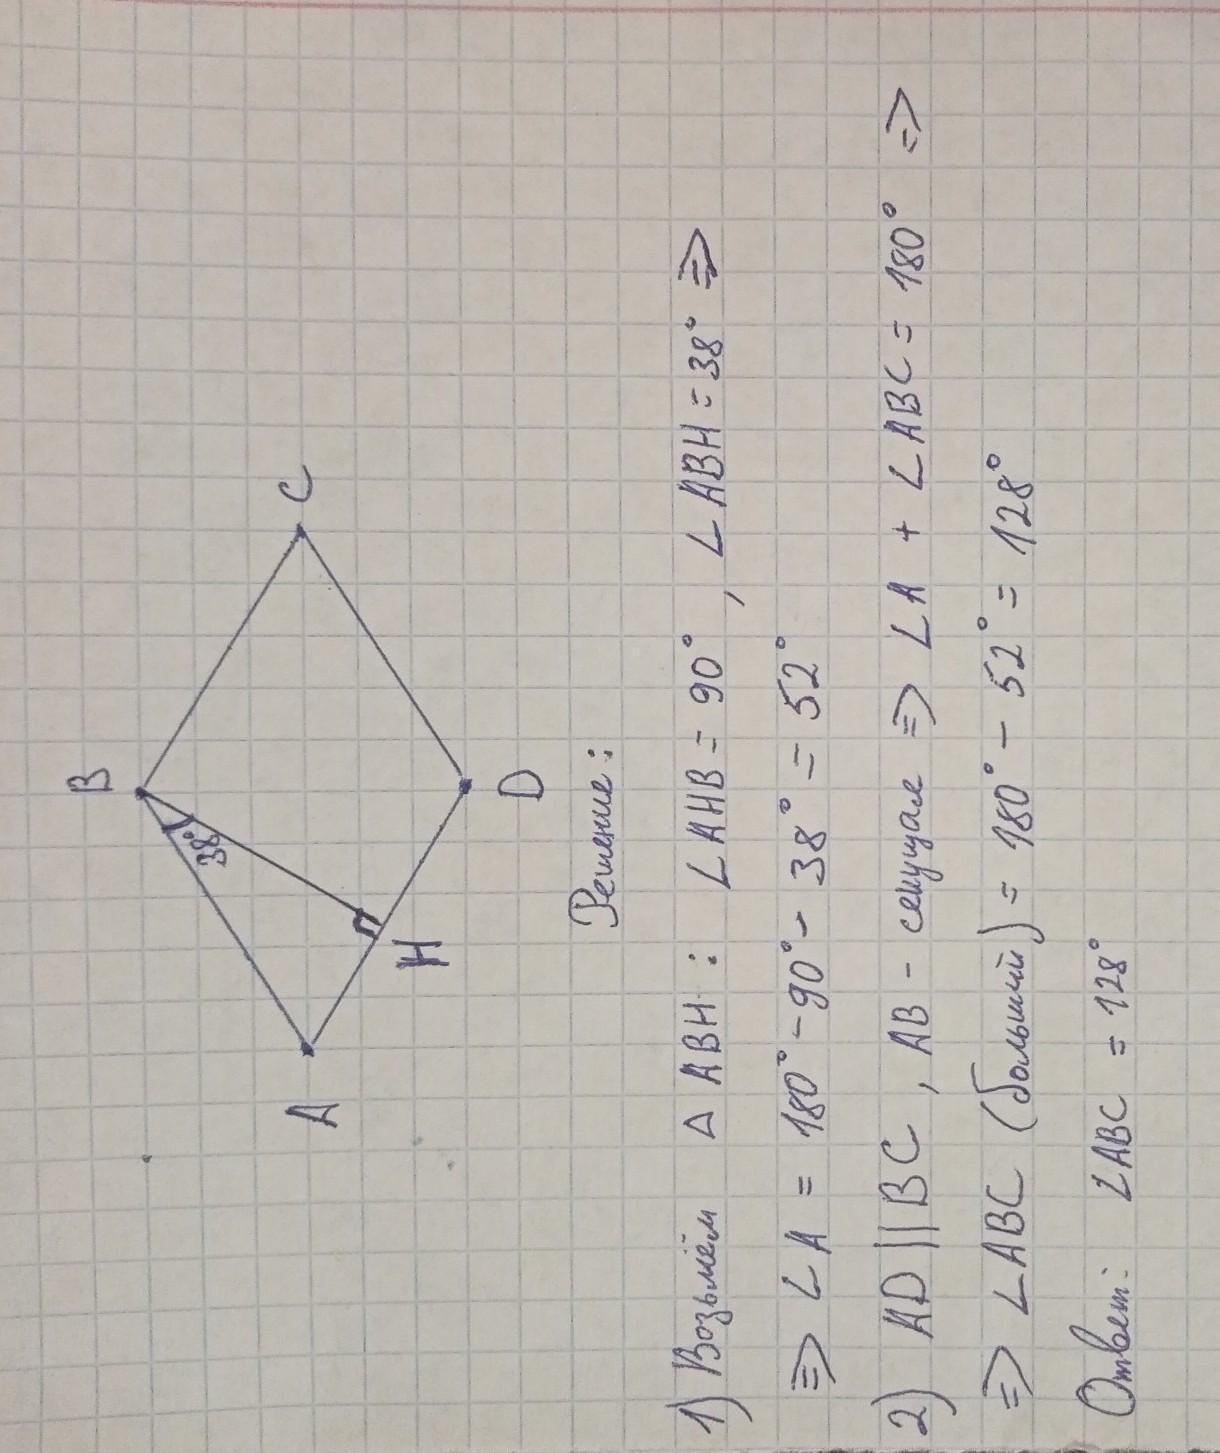 B
38°
A
C
H
D
Решение:
1) Возьмём △ ABH: ∠AHB = 90°, ∠ABH = 38° =>
=> ∠A = 180° - 90° - 38° = 52°
2) AD || BC, AB - секущая => ∠A + ∠ABC = 180° =>
=> ∠ABC (больший) = 180° - 52° = 128°
Ответ: ∠ABC = 128°